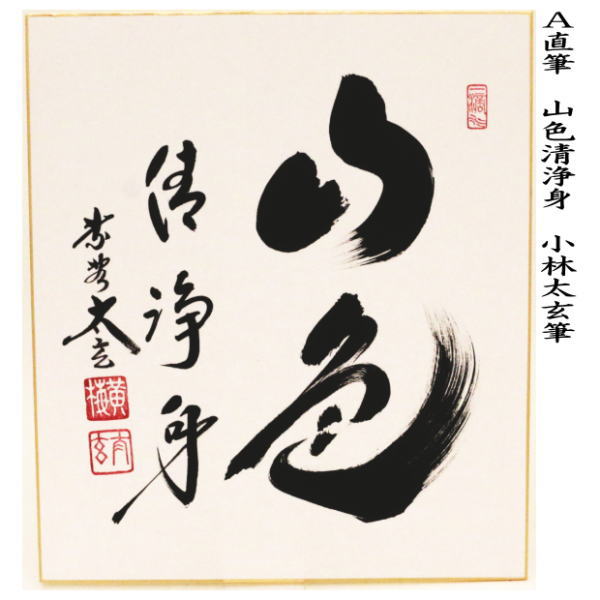 A直筆　山色清浄身　小林太玄筆
山色
清浄身
紫野太玄
黄梅
太玄